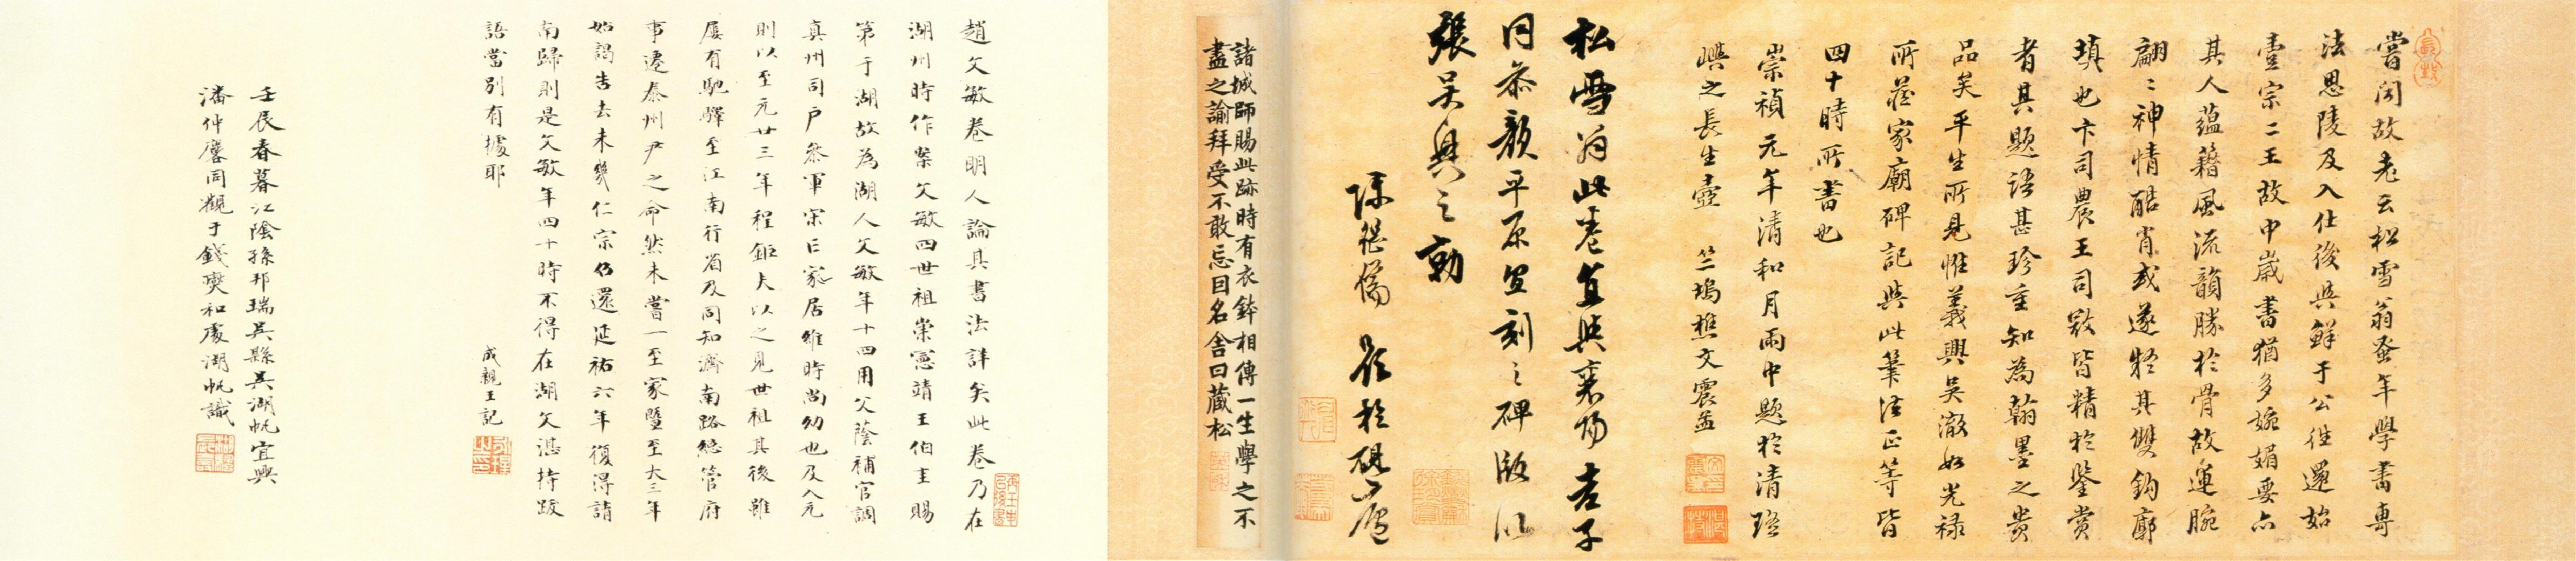 嘗聞故老云松雪翁蚤年學書專
法思陵及入仕後與鮮于公往還始
壹宗二王故中歲書猶多婉媚要亦
其人蘊藉風流韻勝於骨故運腕
翩〻神情酷肖或遂疑其雙鉤廓
填也卞司農王司敎皆精於鑒賞
者其題語甚珍重知為翰墨之貴
品矣平生所見惟義興吳澈如光祿
所藏家廟碑記與此筆法正等皆
四十時所書也
崇禎元年清和月雨中題於清瑤
嶼之長生壺 竺塢樵文震孟
松雪翁此卷宜與襄陽老子
同參顏平原宜刻之碑版以
張吳興之勳
陳繼儒觀於硯廬
諸城師賜此跡時有衣鉢相傳一生學之不
盡之諭拜受不敢忘因名舍曰藏松
趙文敏卷明人論其書法詳矣此卷乃在
湖州時作案文敏四世祖崇憲靖王伯圭賜
第于湖故為湖人文敏年十四用父蔭補官調
真州司戶參軍宋亡家居維時尚幼也及入元
則以至元廿三年程鉅夫以之見世祖其後雖
屢有馳驛至江南行省及同知濟南路總管府
事遷泰州尹之命然未嘗一至家暨至大三年
始謁告去未幾仁宗仍還延祐六年復得請
南歸則是文敏年四十時不得在湖文湛持跋
語當別有據耶
成親王記
壬辰春暮江陰孫邦瑞吳縣吳湖帆宜興
潘仲麐同觀于錢煚和處湖帆識